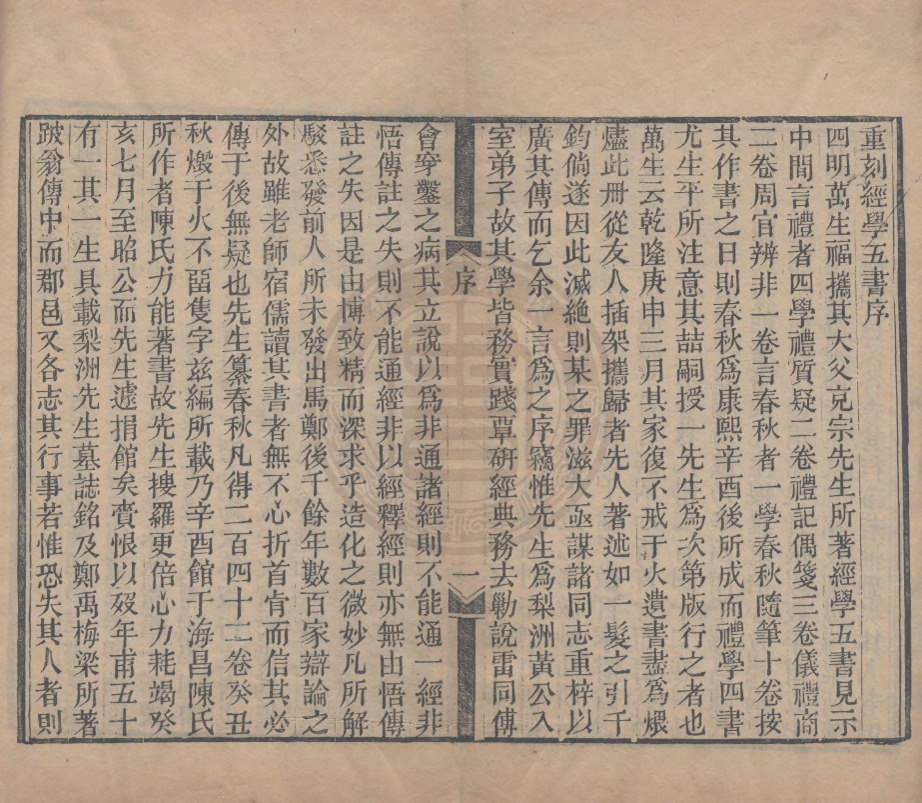 重刻經學五書序
四明萬生福攜其大父克宗先生所著經學五書見示
中間言禮者四學禮質疑二卷禮記偶箋三卷儀禮商
二卷周官辨非一卷言春秋者一學春秋隨筆十卷按
其作書之日則春秋爲康熙辛酉後所成而禮學四書
尤生平所注意其喆嗣授一先生爲次第版行之者也
萬生云乾隆庚申三月其家復不戒于火遺書盡爲煨
燼此册從友人插架攜歸者先人著述如一髮之引千
鈞倘遂因此滅絶則某之罪滋大亟謀諸同志重梓以
廣其傳而乞余一言爲之序竊惟先生爲梨洲黃公入
室弟子故其學皆務實踐覃研經典務去勦說雷同傅
序
一
會穿鑿之病其立說以爲非通諸經則不能通一經非
悟傳註之失則不能通經非以經釋經則亦無由悟傳
註之失因是由博致精而深求乎造化之微妙凡所解
駁悉發前人所未發出馬鄭後千餘年數百家辯論之
外故雖老師宿儒讀其書者無不心折首肯而信其必
傳于後無疑也先生纂春秋凡得二百四十二卷癸丑
秋燬于火不留隻字茲編所載乃辛酉館于海昌陳氏
所作者陳氏力能著書故先生搜羅更倍心力耗竭癸
亥七月至昭公而先生遽捐館矣賫恨以歿年甫五十
有一其一生具載梨洲先生墓誌銘及鄭禹梅梁所著
跛翁傳中而郡邑又各志其行事若惟恐失其人者則